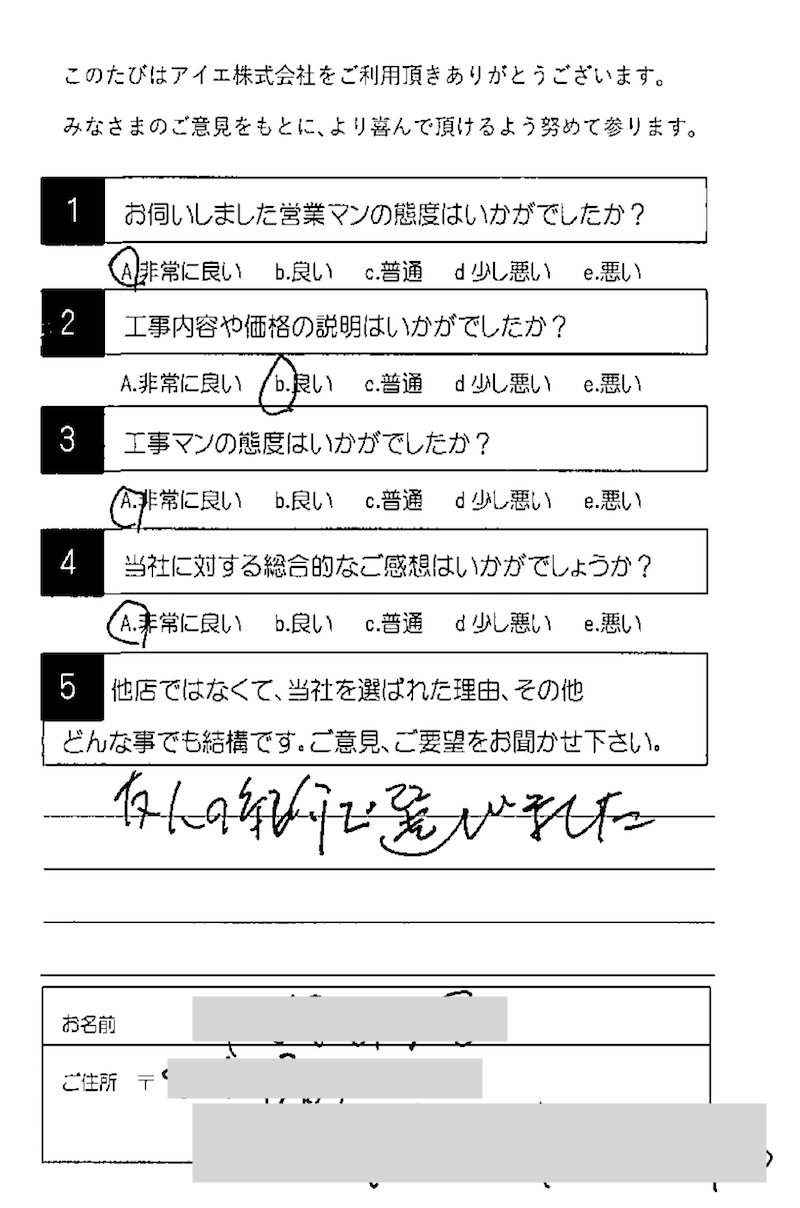 このたびはアイエ株式会社をご利用頂きありがとうございます。
みなさまのご意見をもとに、より喜んで頂けるよう努めて参ります。
1 お伺いしました営業マンの態度はいかがでしたか？
A.非常に良い b.良い c.普通 d 少し悪い e.悪い
2 工事内容や価格の説明はいかがでしたか？
A.非常に良い b.良い c.普通 d 少し悪い e.悪い
3 工事マンの態度はいかがでしたか？
A.非常に良い b.良い c.普通 d 少し悪い e.悪い
4 当社に対する総合的なご感想はいかがでしょうか？
A.非常に良い b.良い c.普通 d 少し悪い e.悪い
5 他店ではなくて、当社を選ばれた理由、その他
どんな事でも結構です。ご意見、ご要望をお聞かせ下さい。
友人の紹介で選びました
お名前
ご住所 〒